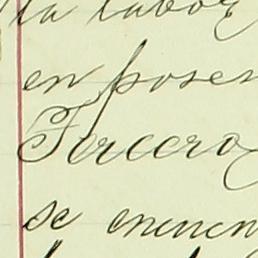 la labor
en posen
Tercero
se encuen